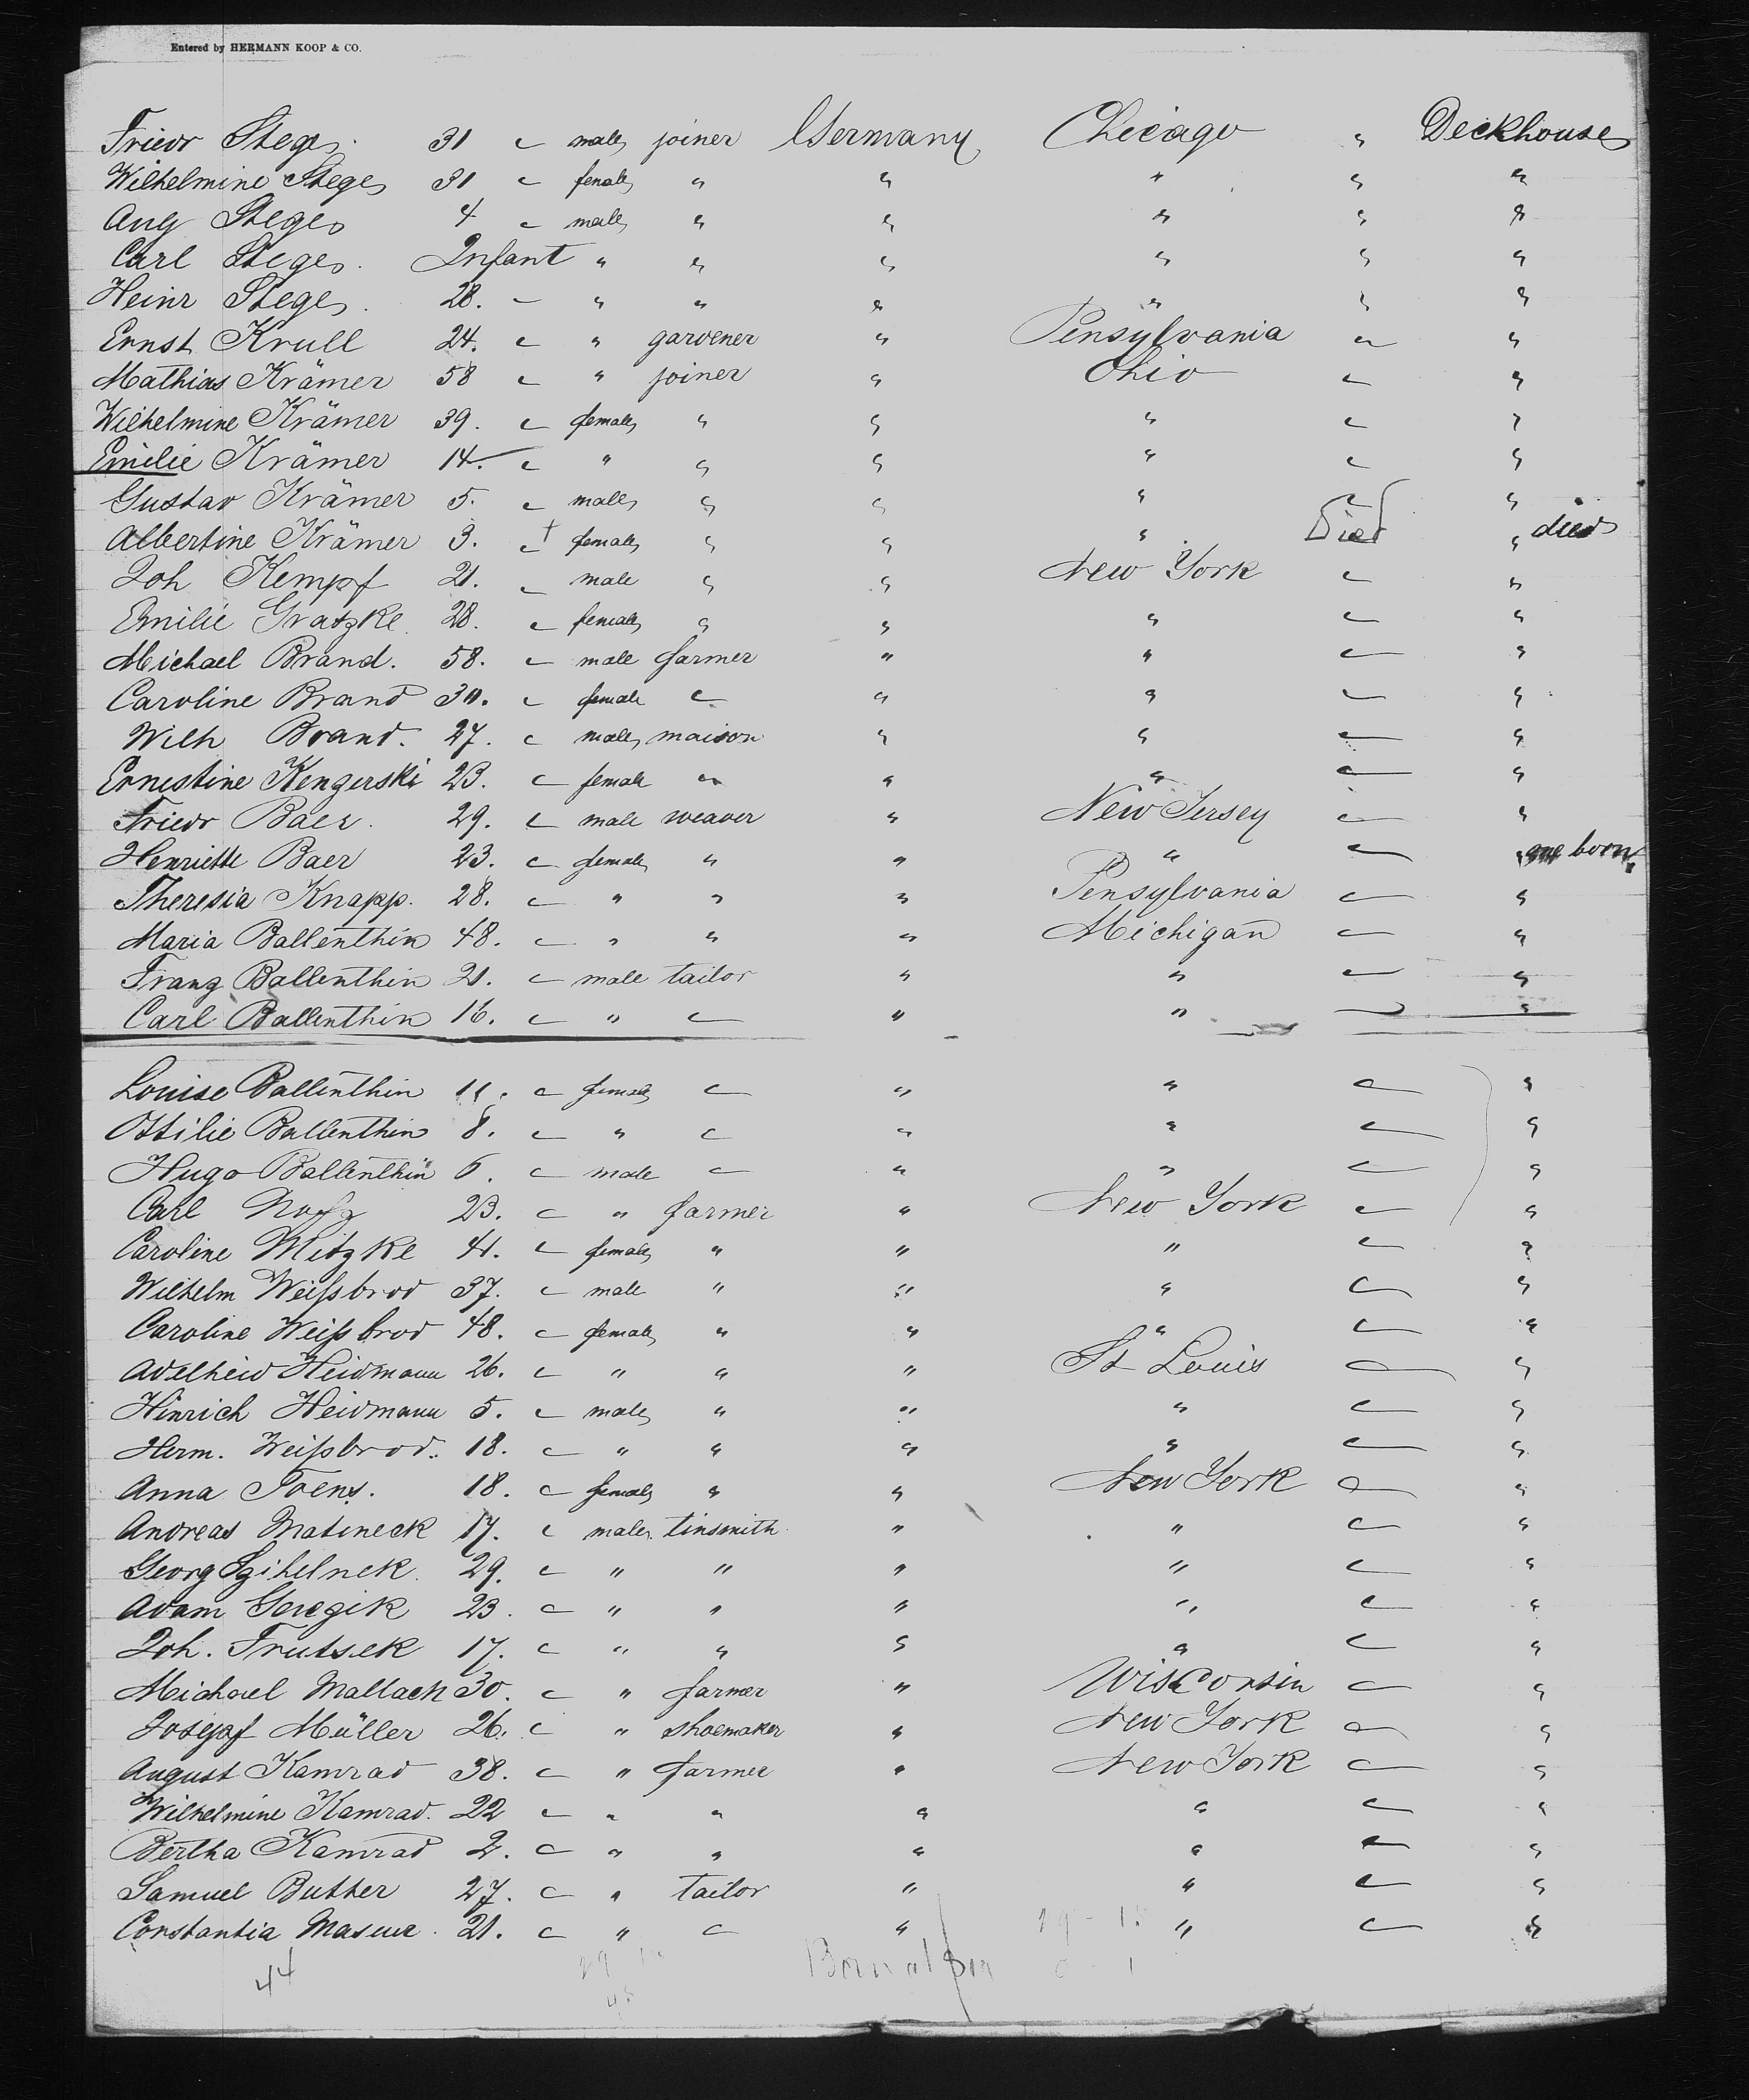 Entered by HERMANN KOOP & CO.
Friedr Stege 31 " male joiner Germany Chicago " Deckhouse
Wilhelmine Stege 31 " female " " " " "
Aug Stege 4 " male " " " " "
Carl Stege Infant " " " " " "
Heinr Stege 28. " " " " " " "
Ernst Krull 24. " " gardener " Pensylvania " "
Mathias Krämer 58 " " joiner " Ohio " "
Wilhelmine Krämer 39. " female " " " " "
Emilie Krämer 14. " " " " " " "
Gustav Krämer 5. " male " " " " "
Albertine Krämer 3. " † female " " " Died " died
Joh Kempf 21. " male " " New York " "
Emilie Gratzke 28. " female " " " " "
Michael Brand. 58. " male farmer " " " "
Caroline Brand 30. " female " " " " "
Wilh Brand. 27. " male maison " " " "
Ernestine Kengerski 23. " female " " " " "
Friedr Baer 29. " male weaver " New Jersey " "
Henriette Baer 23. " female " " " " " one born
Theresia Knapp. 28. " " " " Pensylvania " "
Maria Ballenthin 48. " " " " Michigan " "
Franz Ballenthin 21. " male tailor " " " "
Carl Ballenthin 16. " " " " " " "
Louise Ballenthin 11. " female " " " " "
Ottilie Ballenthin 8. " " " " " " "
Hugo Ballenthin 6. " male " " " " "
Carl 23. " " farmer " New York " "
Caroline Mitzke 41. " female " " " " "
Wilhelm Weißbrod 37. " male " " " " "
Caroline Weißbrod 48. " female " " " " "
Adelheid Heidmann 26. " " " " St Louis " "
Hinrich Heidmann 5. " male " " " " "
Herm. Weißbrod. 18. " " " " " " "
Anna Toens. 18. " female " " New York " "
Andreas Matineck 17. " male tinsmith " " " "
Georg Szihelnek 29. " " " " " " "
Adam Geregik 23. " " " " " " "
Joh. Frutsek 17. " " " " " " "
Michael Mallach 30. " " farmer " Wisconsin " "
Josepf Müller 26. " " shoemaker " New York " "
August Kamrad 38. " " farmer " New York " "
Wilhelmine Kamrad. 22 " " " " " " "
Bertha Kamrad 2. " " " " " " "
Samuel Buther 27. " " tailor " " " "
Constantia Masur. 21. " " " " " " "
44 Born at Sea